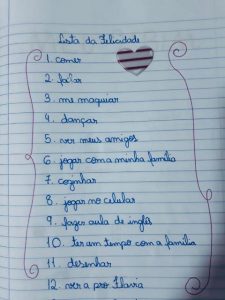 Lista da Felicidade
1. comer
2. falar
3. me maquiar
4. dançar
5. ver meus amigos
6. jogar com a minha família
7. cozinhar
8. jogar no celular
9. fazer aula de inglês
10. ter um tempo com a família
11. desenhar
12. ver a pro